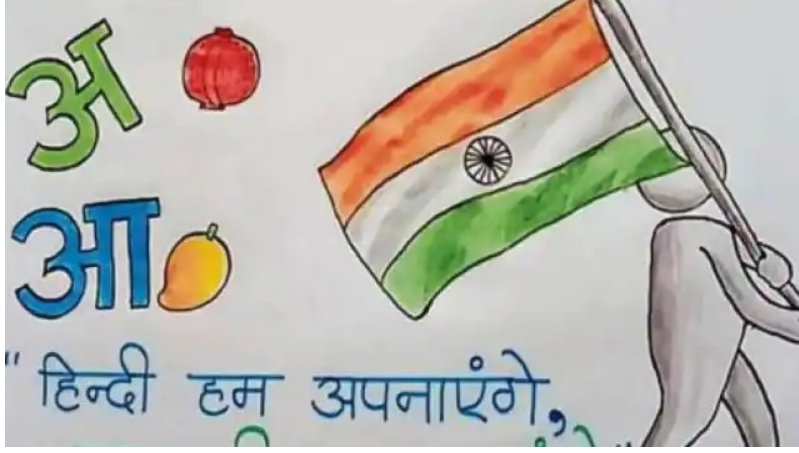 अ
आ
" हिन्दी हम अपनाएंगे,